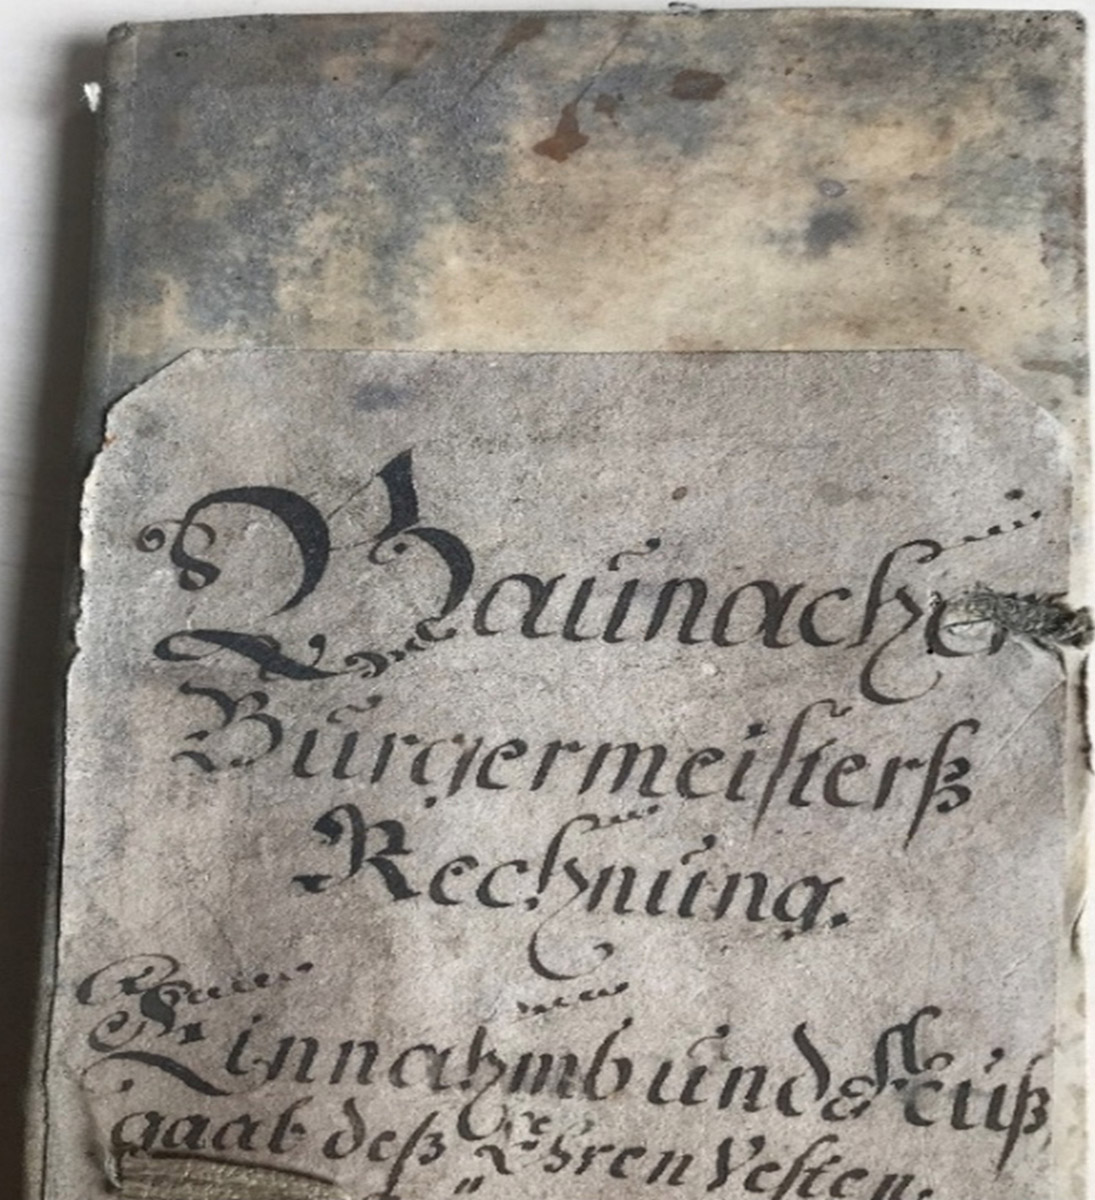 Baunacher
Burgermeisterß
Rechnung.
Einnahmb und Auß
gaab deß Ehren Vesten